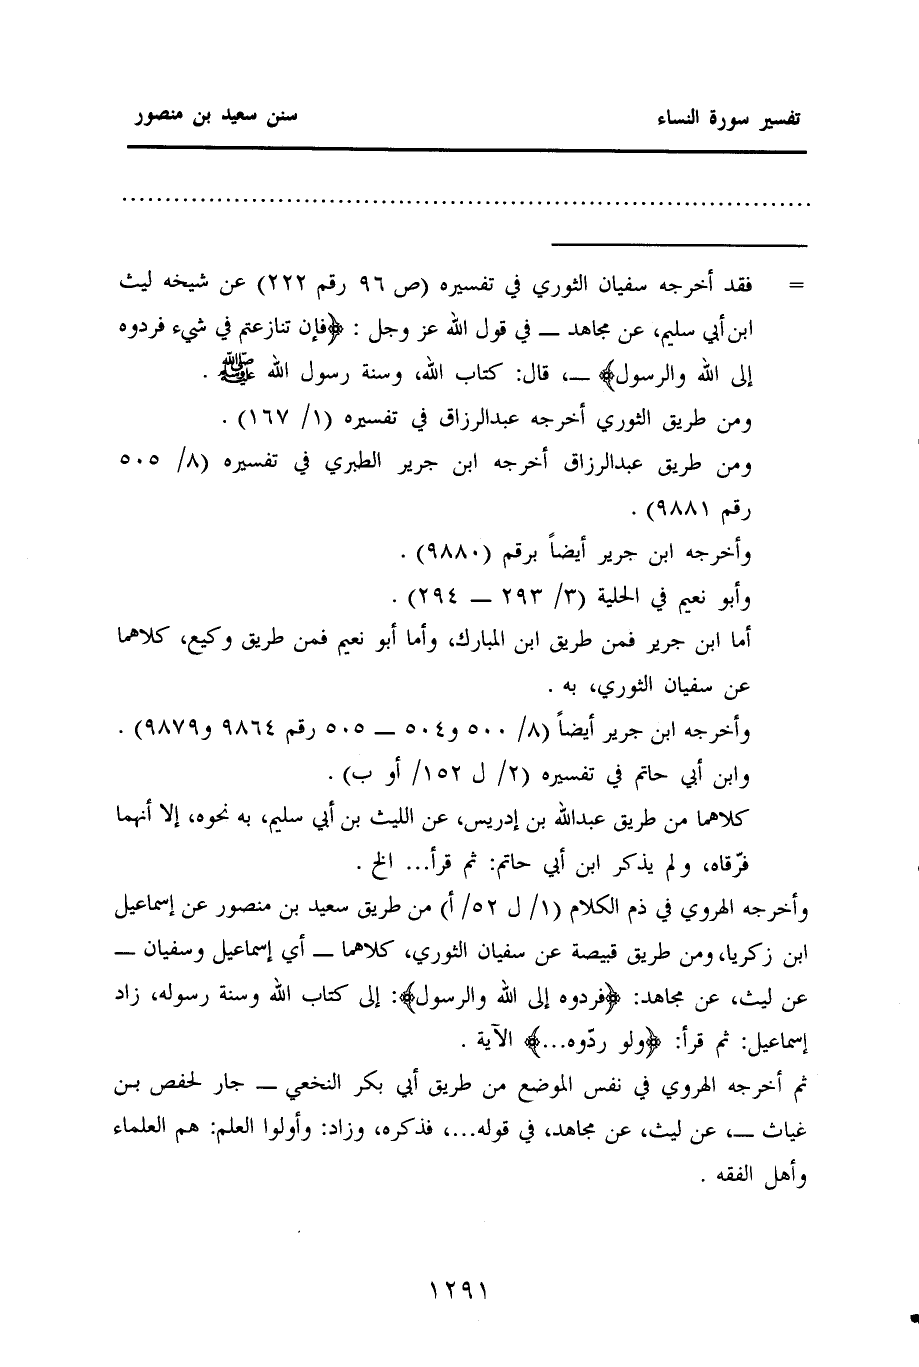 تفسير سورة النساء سنن سعيد بن منصور
= فقد أخرجه سفيان الثوري في تفسيره (ص ٩٦ رقم ٢٢٢) عن شيخه ليث
ابن أبي سليم، عن مجاهد ــ في قول الله عز وجل : ﴿فإن تنازعتم في شيء فردوه
إلى الله والرسول﴾ ــ، قال: كتاب الله، وسنة رسول الله ﷺ .
ومن طريق الثوري أخرجه عبدالرزاق في تفسيره (١/ ١٦٧) .
ومن طريق عبدالرزاق أخرجه ابن جرير الطبري في تفسيره (٨/ ٥٠٥
رقم ٩٨٨١) .
وأخرجه ابن جرير أيضاً برقم (٩٨٨٠) .
وأبو نعيم في الحلية (٣/ ٢٩٣ ــ ٢٩٤) .
أما ابن جرير فمن طريق ابن المبارك، وأما أبو نعيم فمن طريق وكيع، كلاهما
عن سفيان الثوري، به .
وأخرجه ابن جرير أيضاً (٨/ ٥٠٠ و٥٠٤ ــ ٥٠٥ رقم ٩٨٦٤ و٩٨٧٩) .
وابن أبي حاتم في تفسيره (٢/ ل ١٥٢/ أ و ب) .
كلاهما من طريق عبدالله بن إدريس، عن الليث بن أبي سليم، به نحوه، إلا أنهما
فرّقاه، ولم يذكر ابن أبي حاتم: ثم قرأ... الخ .
وأخرجه الهروي في ذم الكلام (١/ ل ٥٢/ أ) من طريق سعيد بن منصور عن إسماعيل
ابن زكريا، ومن طريق قبيصة عن سفيان الثوري، كلاهما ــ أي إسماعيل وسفيان ــ
عن ليث، عن مجاهد: ﴿فردوه إلى الله والرسول﴾: إلى كتاب الله وسنة رسوله، زاد
إسماعيل: ثم قرأ: ﴿ولو ردّوه...﴾ الآية .
ثم أخرجه الهروي في نفس الموضع من طريق أبي بكر النخعي ــ جار لحفص بن
غياث ــ، عن ليث، عن مجاهد، في قوله...، فذكره، وزاد: وأولوا العلم: هم العلماء
وأهل الفقه .
١٢٩١